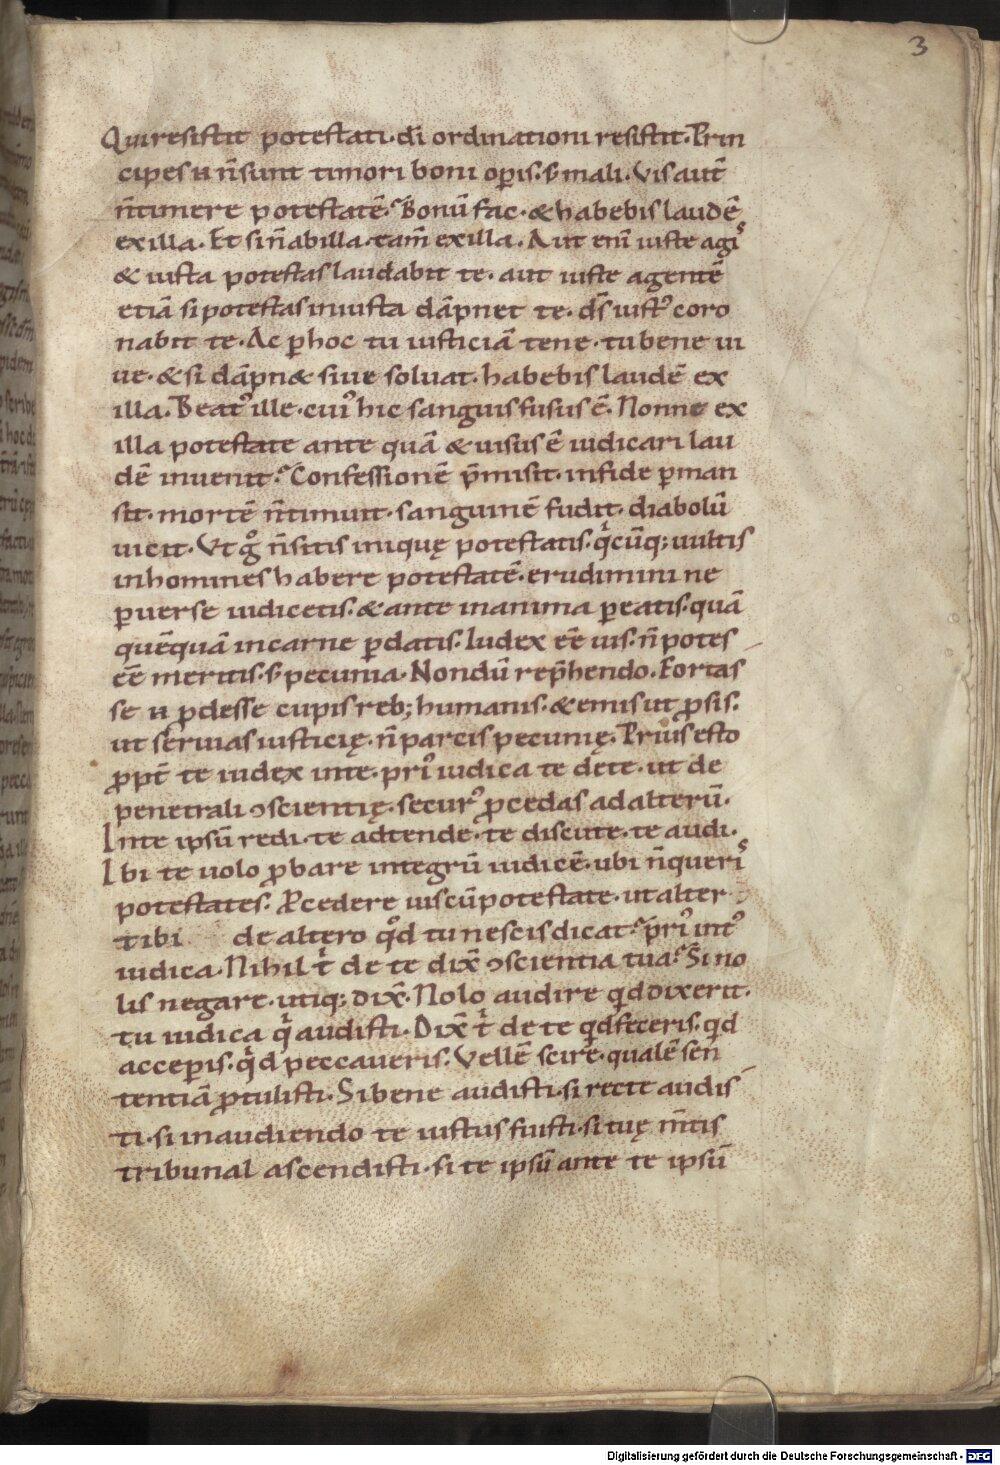 3
Qui resistit potestati· dī ordinationi resistit· Prin
cipes u̅ n̄ sunt timori boni opis· s; mali· Vis aut̄
n̄ timere potestatē· Bonū fac· & habebis laudē
ex illa· Et si n̄ ab illa· tam̄ ex illa· Aut eni̅ iuste agis
& iusta potestas laudabit te· aut iuste agentē
etiā si potestas iniusta dāpnet te· ds̄ iustꝰ coro
nabit te· Ac ꝑ hoc tu iusticiā tene· tu bene ui
ue· & si dāpn& siue soluat· habebis laudē ex
illa· Beatꝰ ille· cuiꝰ hic sanguis fusus ē· Nonne ex
illa potestate ante quā & uisus ē iudicari lau
dē inuenit· Confessionē p̄misit· in fide ꝑman
sit· mortē n̄ timuit· sanguinē fudit· diabolū
uicit· Vt gͦ n̄ sitis iniquę potestatis· qͥcūq; uultis
in homines habere potestatē· erudimini ne
ꝑuerse iudicetis· & ante in anima ꝑeatis· quā
quēquā in carne ꝑdatis· Iudex eē uis· n̄ potes
eē meritis· s; pecunia· Nondū rep̄hendo· Fortas
se u̅ ꝓdesse cupis reb; humanis· & emis ut ꝓsis·
ut seruias iusticię· n̄ parcis pecunię· Prius esto
ꝓpt̄ te iudex in te· priꝰ iudica te de te· ut de
penetrali ꝯscientię· securꝰ ꝓcedas ad alterū·
In te ipsū redi· te adtende· te discute· te audi·
Ibi te uolo ꝓbare integrū iudicē· ubi n̄ queris
potestates· Ꝓcedere uis cū potestate· ut alter
tibi de altero qͦd tu nescis dicat· priꝰ intꝰ
iudica· Nihil tͥ de te dix̄ ꝯscientia tua· Si no
lis negare· utiq; dix̄· Nolo audire qͥd dixerit·
tu iudica qͥ audisti· Dix̄ tͥ de te qͥd feceris· qͥd
acceꝑis· qͥd peccaueris· Vellē scire· qualē sen
tentiā ꝓtulisti· Si bene audisti· si recte audis
ti· si in audiendo te iustus fuisti· si tuę m̄tis
tribunal ascendisti· si te ipsū ante te ipsū
Digitalisierung gefördert durch die Deutsche Forschungsgemeinschaft - DFG